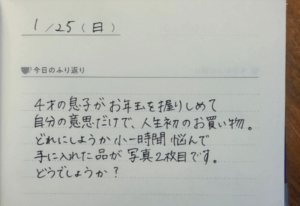 1/25(日)
今日のふり返り
4才の息子がお年玉を握りしめて
自分の意思だけで、人生初のお買い物。
どれにしようか小一時間悩んで
手に入れた品が写真2枚目です。
どうでしょうか?